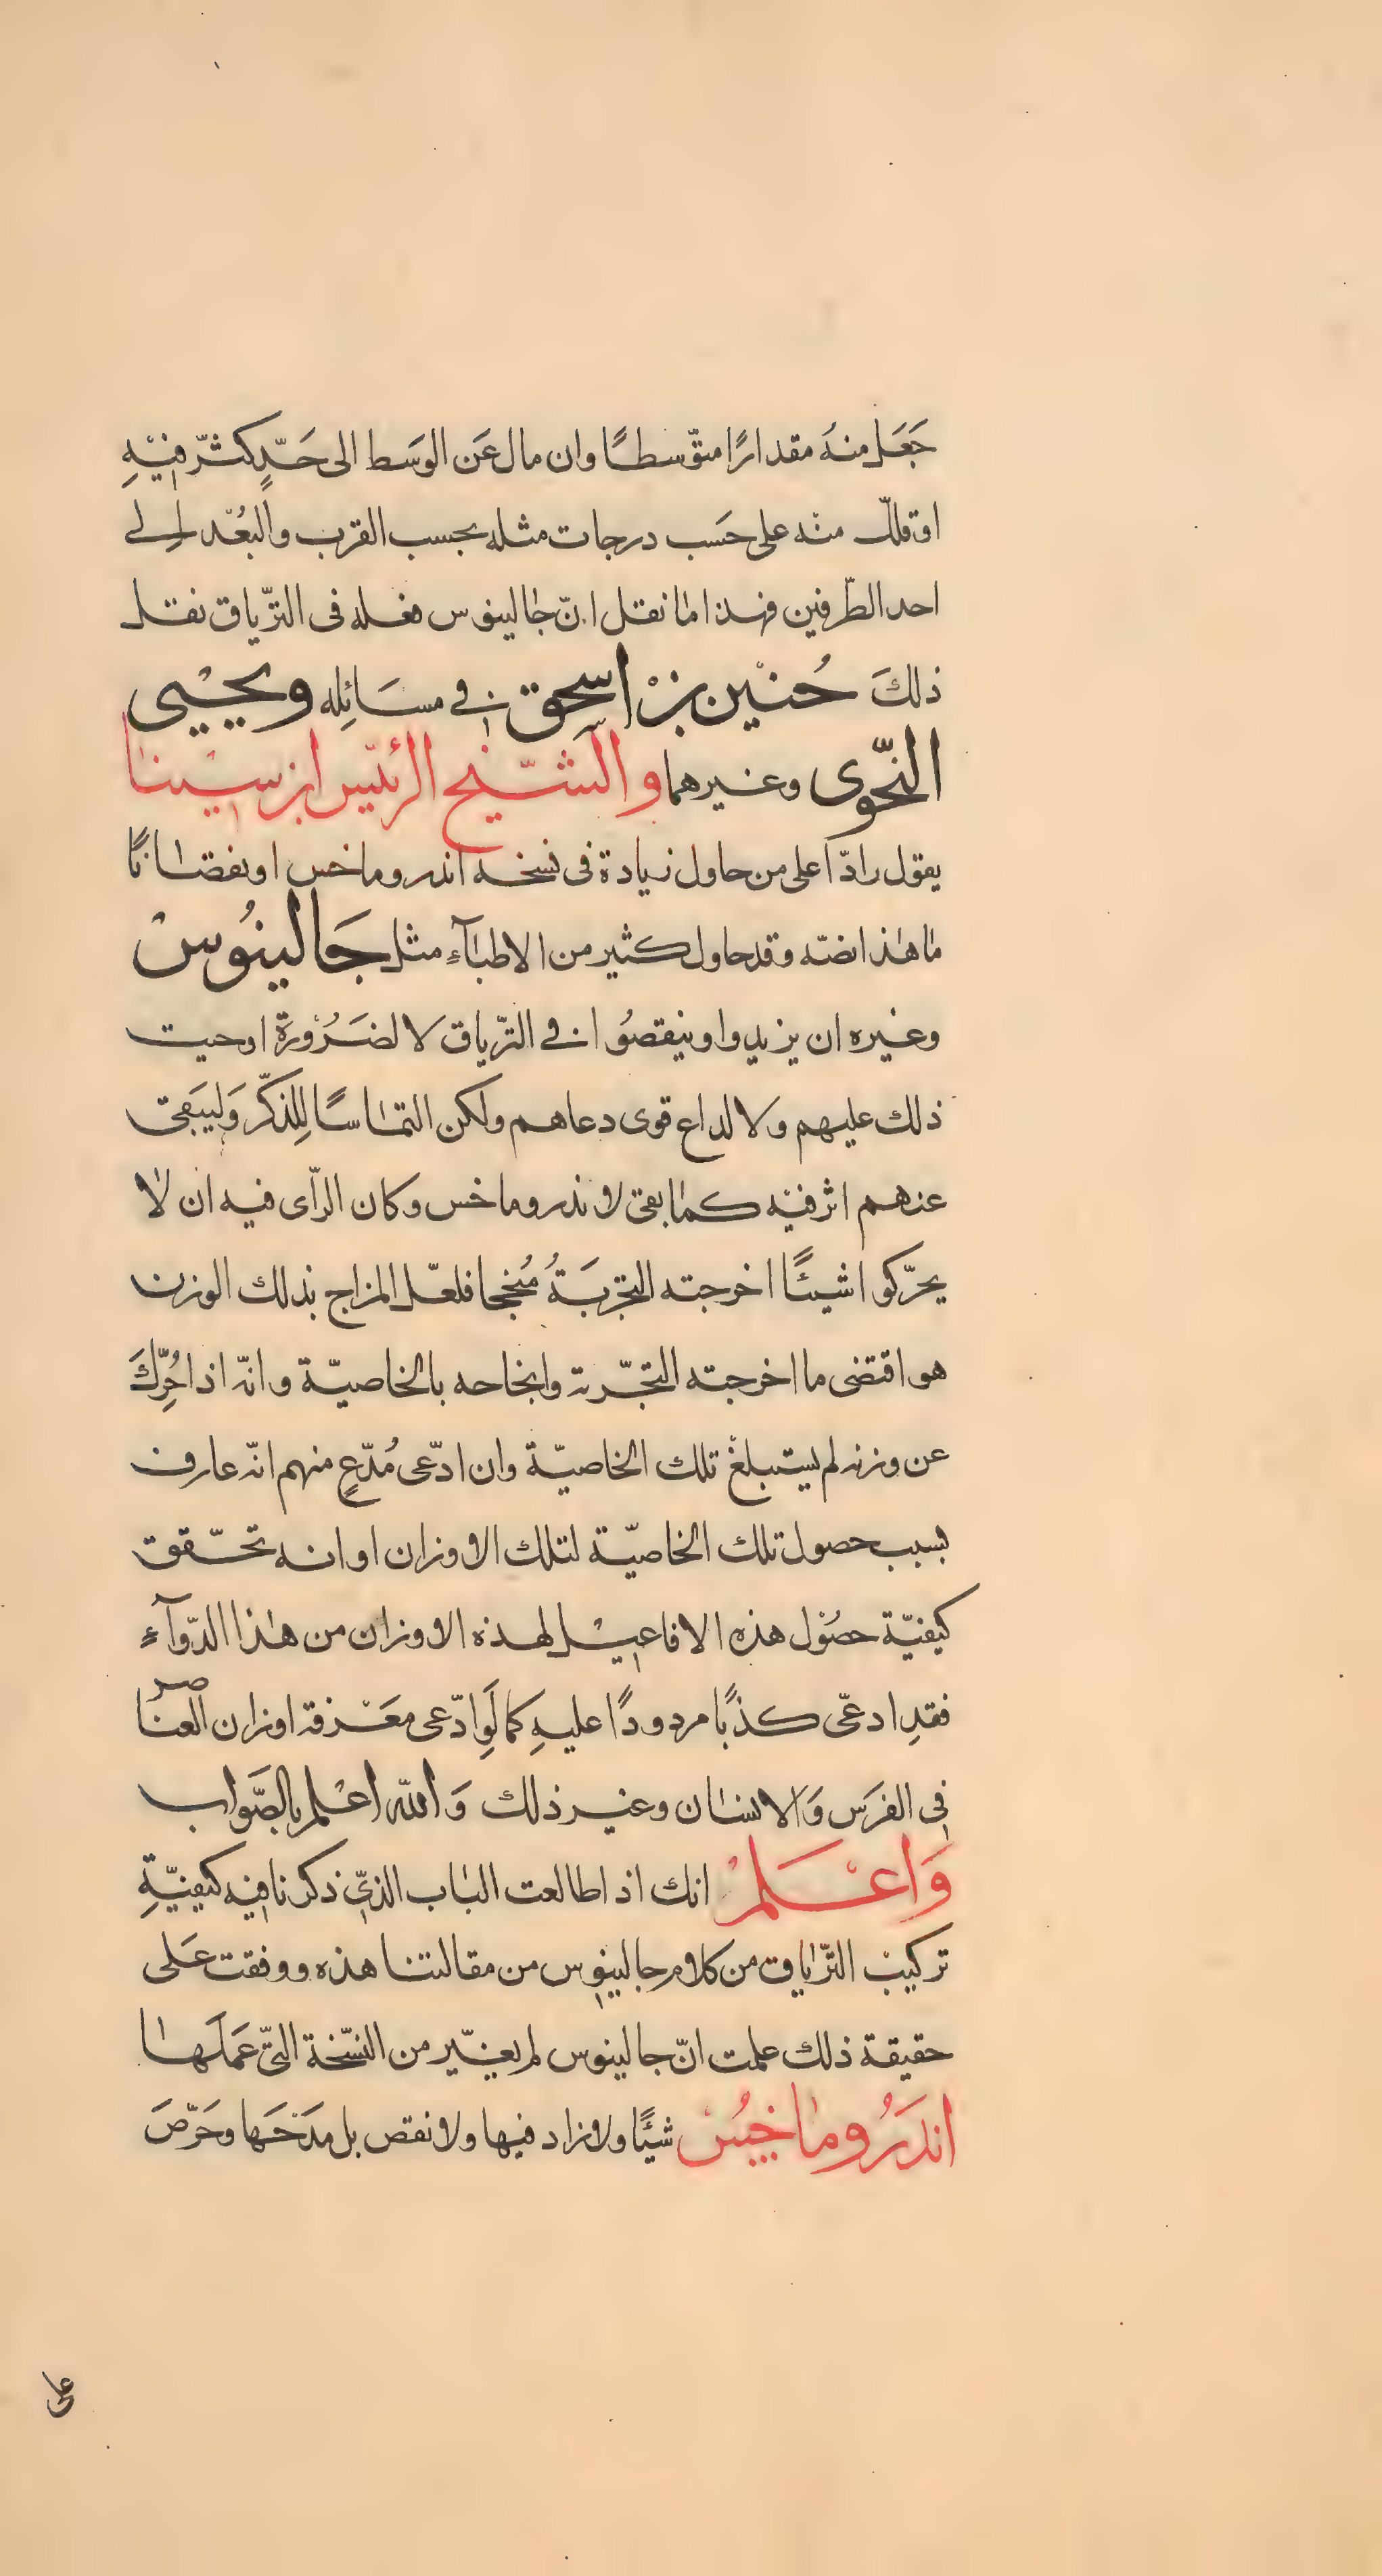 جَعَل منهُ مقدارًا متوّسطًا وان مال عَن الوَسط الى حَدٍّ كثرّ فيْهِ
او قللّ منْه على حَسب درجات مثله بحسب القرب والبُعْد اِلى
احد الطّرفين فهذا مانقل انّ جالينوس فعله فى التّرياق نقل
ذلكَ حُنيْن بزْ اسحق فى مسَائِله ويحيْيى
النّحوى وغيرهما والشّيخ الرئيّس ابن سيْنا
يقول رادّا على من حاول زيادة فى نسخه اندروماخس او نقصانًا
ما هذا نصّه وقد حاول كثير من الاطبآءِ مثل جَالينُوسْ
وغيره ان يزيدوا او ينقصُوا فى التّرياق لا لضَرُوْرة اوحيت
ذلك عليهم ولا لداع قوى دعاهم ولكن التماسًا لِلذكّر وَليبَقى
عنهم اثر فيْه كما بقى لاندروماخس وكان الرّأى فيه ان لا
يحرّكوا شيئًا اخرجته التجْربَةُ مُنجحا فلعّل المزاج بذلك الوزن
هو اقتضى ما اخرجته التجّربة وانجاحه بالخاصيّة وانّه اذا حُرِّكَ
عن وزنه لم يستبلغ تلك الخاصيّة وان ادّعى مُدّعٍ منهم انّه عارف
بسبب حصول تلك الخاصيّة لتلك الاوزان او انه تحّقق
كيفيّة حصُوْل هذه الافاعيْل لهذه الاوزان من هذا الدّوآءِ
فقدِ ادعّى كذبًا مردودًا عليهِ كما لَوِ ادّعى معَرْفة اوزان العناصر
فى الفرَس وَالانسان وغير ذلك وَاللّه اعْلم بالصَّواب
وَاعْلَمْ انك اذا طالعت الباب الذىّ ذكرنا فيْه كيفيّةِ
تركيبْ التّرياق من كلام جالينوس من مقالتنا هذه ووقفت عَلى
حقيقة ذلك علمت انّ جالينوس لم يغيّر من النسّخة التىّ عَمَلَها
اندَرُوماخِسُ شيئًا ولازاد فيها ولانقص بل مدَحَها وحَرّصَ
على